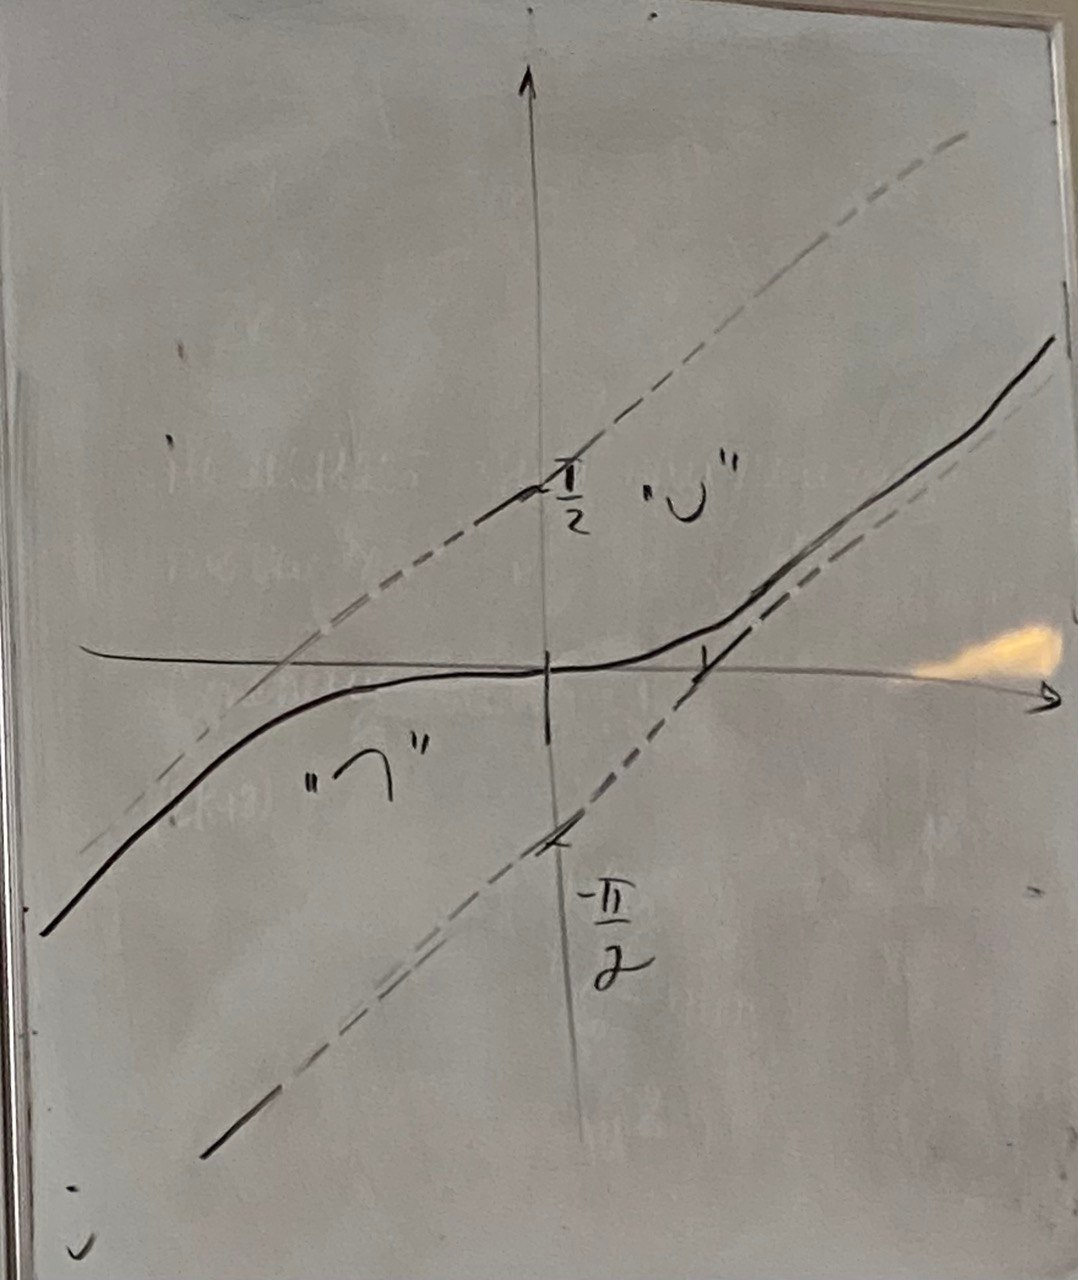 π/2
"∪"
"∩"
-π/2